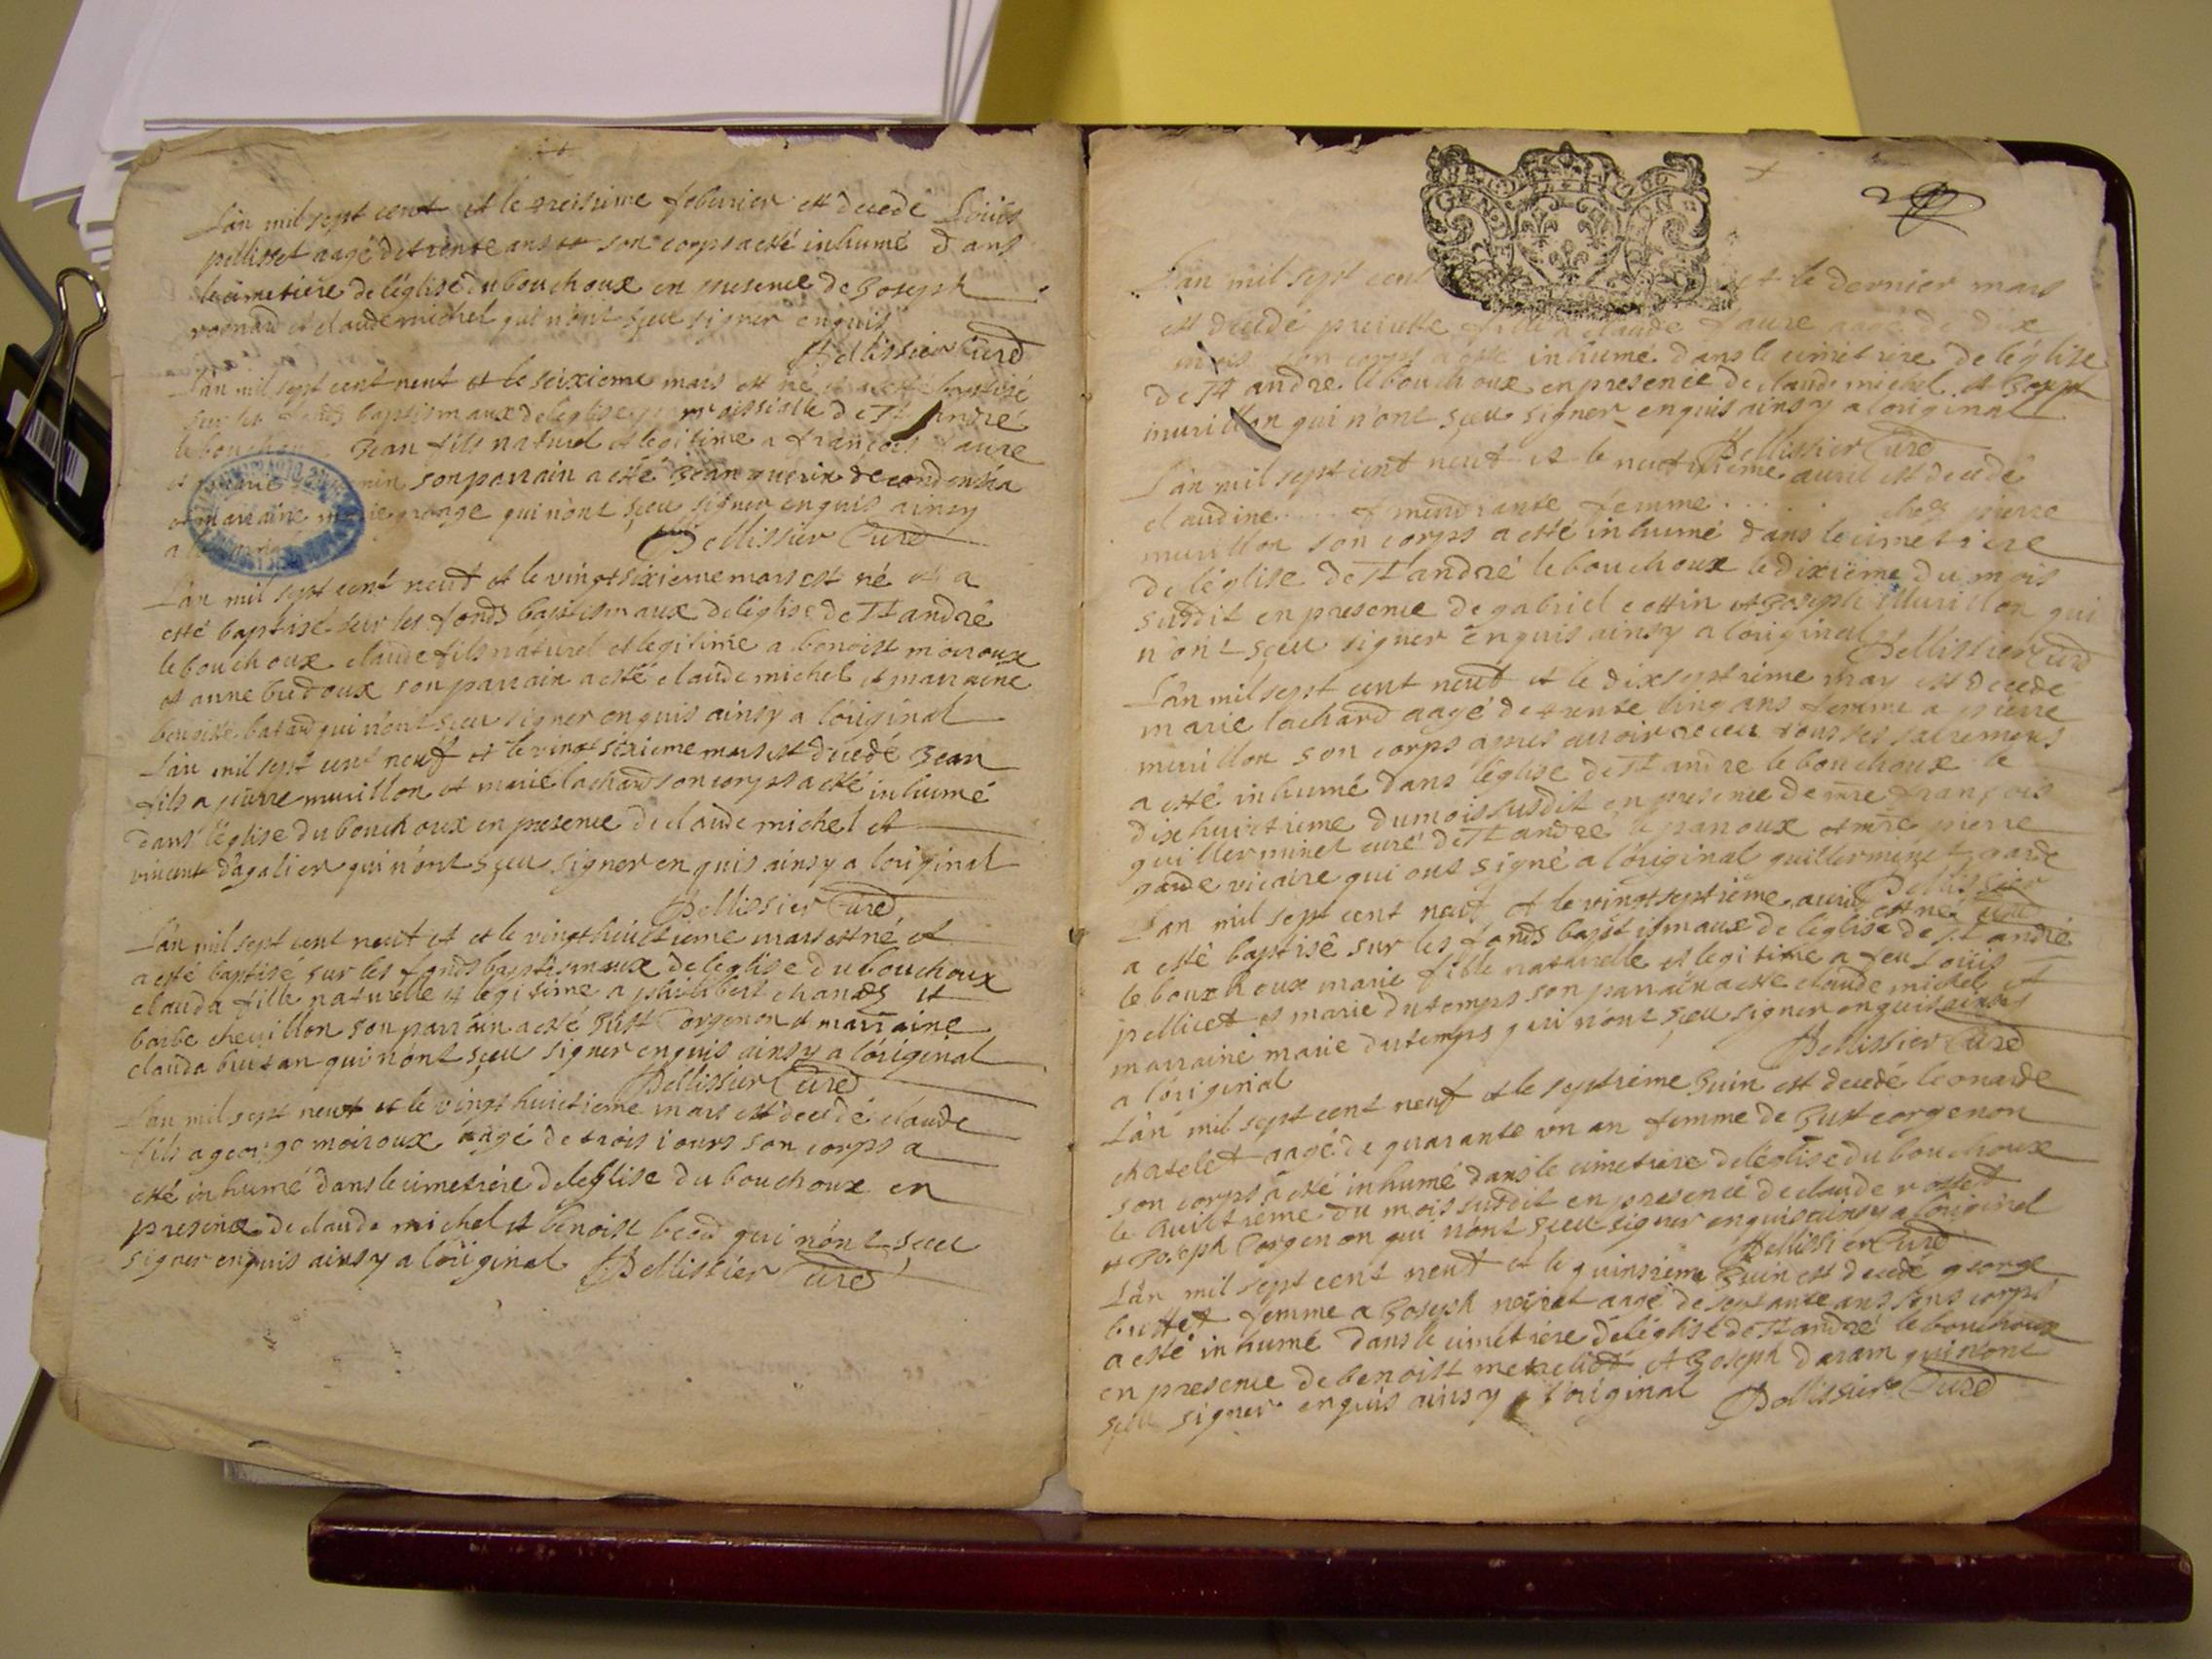 L'an mil sept cent et le treissime febvrier est decedé Loüis
pellisset aagé de trente ans et son corps a esté inhumé dans
le cimetiere de l'églisе du bouchoux en presence de Joseph
et claude michel qui n'ont sçeu signer enquis
Pellissier Curé
L'an mil sept cent neuf et le seixieme mars est né et a esté baptisé
sur les fonds baptismaux de leglise parroissialle de St André
le bouchoux Jean fils naturel et legitime a françois faure
et son parrain a esté Jean guerin de condeissia
et marraine marie grange qui n'ont sçeu signer enquis ainsy
a
Pellissier Curé
L'an mil sept cent neuf et le vingt sixieme mars est né et a
esté baptisé sur les fonds baptismaux de léglise de St andré
le bouchoux claude fils naturel et legitime a benoist moiroux
et anne budoux son parrain a esté claude michel et marraine
benoiste batard qui n'ont sçeu signer enquis ainsy a l'original
L'an mil sept cent neuf et le vingt sixieme mars est decedé Jean
fils a pierre murillon et marie lachard son corps a esté inhumé
dans l'église du bouchoux en presence de claude michel et
vincent dagalier qui n'ont sçeu signer enquis ainsy a l'original
Pellissier Curé
L'an mil sept cent neuf et et le vingt huictieme mars est né et
a esté baptisé sur les fonds baptismaux de leglise du bouchoux
clauda fille naturelle et legitime a philibert chanel et
barbe chevillon son parrain a esté Just Corgenon et marraine
clauda butan qui n'ont sçeu signer enquis ainsy a l'original
Pellissier Curé
L'an mil sept neuf et le vingt huictieme mars est decedé claude
fils a george moiroux aagé de trois iours son corps a
esté inhumé dans le cimetiére de leglise du bouchoux en
presence de claude michel et benoist beod qui n'ont sceu
signer enquis ainsy a l'original Pellissier Curé
GEN
L'an mil sept cent et le dernier mars
est decedé fille a claude faure aagé de dix
mois son corps a esté inhumé dans le cimetiere de léglise
de St andre le bouchoux en presence de claude michel et Joseph
murillon qui n'ont sçeu signer enquis ainsy a l'original
Pellissier Curé
L'an mil sept cent neuf et le neufvieme avril est decedé
claudine ..... mendiante femme ..... chez pierre
murillon son corps a esté inhumé dans le cimetiere
de léglise de St andré le bouchoux le dixiéme du mois
susdit en presence de gabriel cottin et Joseph Murillon qui
n'ont sçeu signer enquis ainsy a l'original Pellissier Curé
L'an mil sept cent neuf et le dixseptieme may est decedé
marie lachard aagé de trente cinq ans femme a pierre
murillon son corps apres avoir receu tous ses sacremens
a esté inhumé dans l'église de St andre le bouchoux le
dixhuictieme du mois susdit en presence de mre françois
guillerminet curé de St andré le panoux et mre pierre
garde vicaire qui ont signé a l'original guillerminet garde
Pellissier
L'an mil sept cent neuf et le vingt septieme avril est né Curé
a esté baptisé sur les fonds baptismaux de léglise de St andré
le bouxhoux marie fille naturelle et legitime a feu Loüis
pellicet et marie dutemps son parrain a esté claude michel et
marraine marie dutemps qui n'ont sçeu signer enquis ainsy
a l'original Pellissier Curé
L'an mil sept cent neuf et le septiéme Juin est decedé leonarde
chatelet aagé de quarante un an femme de Just corgenon
son corps a esté inhumé dans le cimetiere de léglise du bouchoux
le huictieme du mois susdit en presence de claude rosset
et Joseph Corgenon qui n'ont sçeu signer enquis ainsy a l'original
Pellissier Curé
L'an mil sept cent neuf et le quinsieme Juin est decedé george
buttet femme a Joseph aagé de septante ans sons corps
a esté inhumé dans le cimetiere de léglise de St andré le bouchoux
en presence de benoist et Joseph daram qui n'ont
sçeu signer enquis ainsy a l'original Pellissier Curé